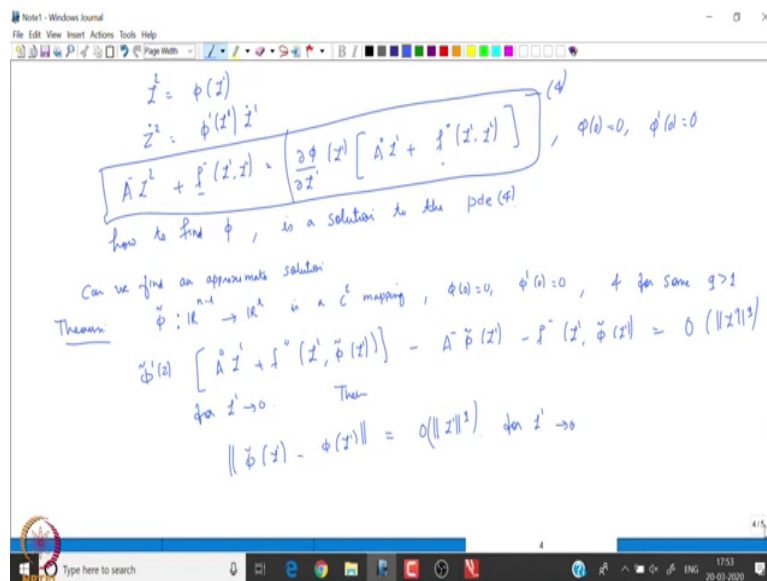 Note1 - Windows Journal
File Edit View Insert Actions Tools Help
Page Width
z² = φ(z¹)
ż² = φ'(z¹) ż¹
A⁻z² + f⁻(z¹, z²) = ∂φ/∂z¹ (z¹) [A⁰z¹ + f⁰(z¹, z²)] —(4) , φ(0)=0, φ'(0)=0
how to find φ, is a solution to the pde (4).
Can we find an approximate solution
Theorem: φ̃ : ℝⁿ⁻ˡ → ℝˡ is a C² mapping, φ(0)=0, φ'(0)=0, & for some q>1
φ̃'(z) [A⁰z¹ + f⁰(z¹, φ̃(z¹))] - A⁻φ̃(z¹) - f⁻(z¹, φ̃(z¹)) = O(‖z¹‖^q)
for z¹ → 0. Then
‖φ̃(z¹) - φ(z¹)‖ = O(‖z¹‖^q). for z¹ → 0
4
4/5
NPTEL
Type here to search
ENG
17:53
20-03-2020